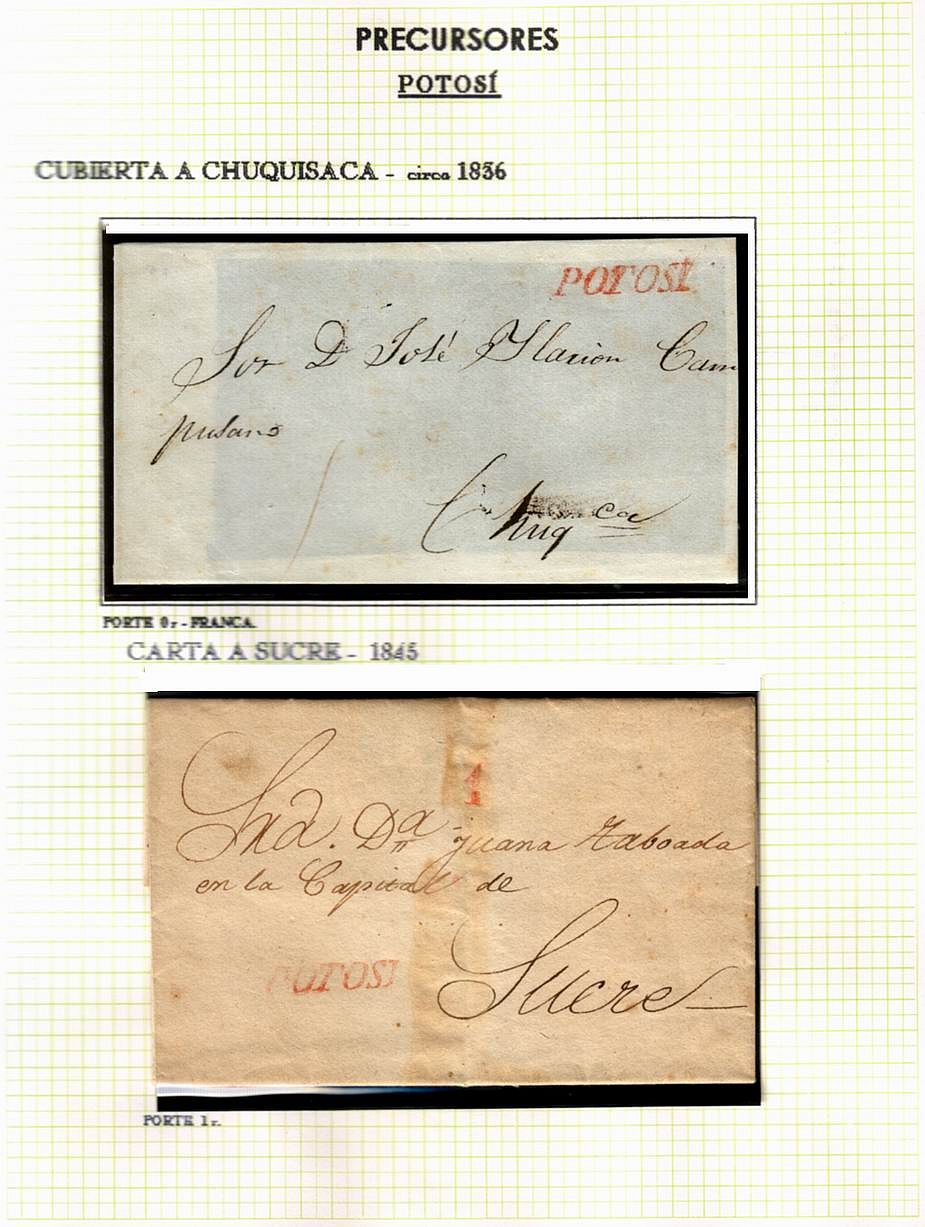 PRECURSORES
POTOSÍ
CUBIERTA A CHUQUISACA - circa 1836
POTOSI
Sor D José Ylarion Cam
pusano
Chuqca
PORTE 0r - FRANCA.
CARTA A SUCRE - 1845
1
Sra. Dna Juana Taboada
en la Capital de
POTOSI
Sucre
PORTE 1r.